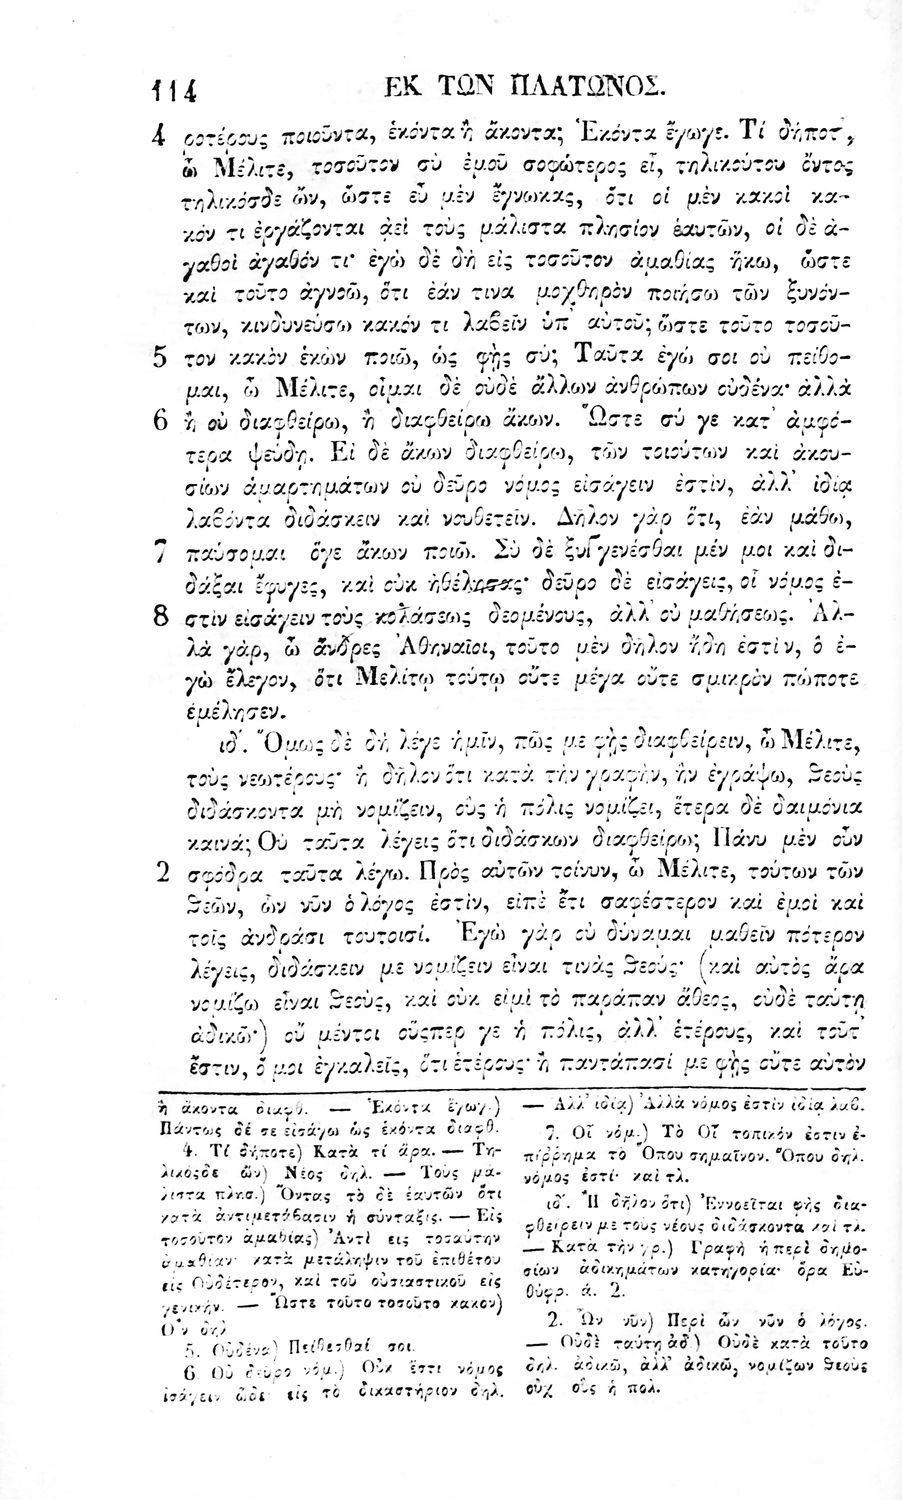 114 ΕΚ ΤΩΝ ΠΛΑΤΩΝΟΣ.
4 ροτέρους ποιοῦντα, ἑκόντα ἢ ἄκοντα; Ἑκόντα ἔγωγε. Τί δήποτ',
ὦ Μέλιτε, τοσοῦτον σὺ ἐμοῦ σοφώτερος εἶ, τηλικούτου ὄντος
τηλικόσδε ὤν, ὥστε εὖ μὲν ἔγνωκας, ὅτι οἱ μὲν κακοὶ κα-
κόν τι ἐργάζονται ἀεὶ τοὺς μάλιστα πλησίον ἑαυτῶν, οἱ δὲ ἀ-
γαθοὶ ἀγαθόν τι· ἐγὼ δὲ δὴ εἰς τοσοῦτον ἀμαθίας ἥκω, ὥστε
καὶ τοῦτο ἀγνοῶ, ὅτι ἐάν τινα μοχθηρὸν ποιήσω τῶν ξυνόν-
των, κινδυνεύσω κακόν τι λαβεῖν ὑπ' αὐτοῦ; ὥστε τοῦτο τοσοῦ-
5 τον κακὸν ἑκὼν ποιῶ, ὡς φῂς σύ; Ταῦτα ἐγώ σοι οὐ πείθο-
μαι, ὦ Μέλιτε, οἶμαι δὲ οὐδὲ ἄλλων ἀνθρώπων οὐδένα· ἀλλὰ
6 ἢ οὐ διαφθείρω, ἢ διαφθείρω ἄκων. Ὥστε σύ γε κατ' ἀμφό-
τερα ψεύδῃ. Εἰ δὲ ἄκων διαφθείρω, τῶν τοιούτων καὶ ἀκου-
σίων ἁμαρτημάτων οὐ δεῦρο νόμος εἰσάγειν ἐστὶν, ἀλλ' ἰδίᾳ
λαβόντα διδάσκειν καὶ νουθετεῖν. Δῆλον γὰρ ὅτι, ἐὰν μάθω,
7 παύσομαι ὅγε ἄκων ποιῶ. Σὺ δὲ ξυγγενέσθαι μέν μοι καὶ δι-
δάξαι ἔφυγες, καὶ οὐκ ἠθέλησας· δεῦρο δὲ εἰσάγεις, οἷ νόμος ἐ-
8 στὶν εἰσάγειν τοὺς κολάσεως δεομένους, ἀλλ' οὐ μαθήσεως. Ἀλ-
λὰ γὰρ, ὦ ἄνδρες Ἀθηναῖοι, τοῦτο μὲν δῆλον ἤδη ἐστὶν, ὃ ἐ-
γὼ ἔλεγον, ὅτι Μελίτῳ τούτῳ οὔτε μέγα οὔτε σμικρὸν πώποτε
ἐμέλησεν.
ιδ'. Ὅμως δὲ δὴ λέγε ἡμῖν, πῶς με φῂς διαφθείρειν, ὦ Μέλιτε,
τοὺς νεωτέρους· ἢ δῆλον ὅτι κατὰ τὴν γραφὴν, ἣν ἐγράψω, θεοὺς
διδάσκοντα μὴ νομίζειν, οὓς ἡ πόλις νομίζει, ἕτερα δὲ δαιμόνια
καινά; Οὐ ταῦτα λέγεις ὅτι διδάσκων διαφθείρω; Πάνυ μὲν οὖν
2 σφόδρα ταῦτα λέγω. Πρὸς αὐτῶν τοίνυν, ὦ Μέλιτε, τούτων τῶν
θεῶν, ὧν νῦν ὁ λόγος ἐστὶν, εἰπὲ ἔτι σαφέστερον καὶ ἐμοὶ καὶ
τοῖς ἀνδράσι τουτοισί. Ἐγὼ γὰρ οὐ δύναμαι μαθεῖν πότερον
λέγεις, διδάσκειν με νομίζειν εἶναι τινὰς θεούς· (καὶ αὐτὸς ἄρα
νομίζω εἶναι θεοὺς, καὶ οὐκ εἰμὶ τὸ παράπαν ἄθεος, οὐδὲ ταύτῃ
ἀδικῶ·) οὐ μέντοι οὕσπερ γε ἡ πόλις, ἀλλ' ἑτέρους, καὶ τοῦτ'
ἔστιν, ὅ μοι ἐγκαλεῖς, ὅτι ἑτέρους· ἢ παντάπασί με φῂς οὔτε αὐτὸν
ἢ ἄκοντα διαφθ. — Ἑκόντα ἔγωγ.)
Πάντως δέ σε εἰσάγω ὡς ἑκόντα διαφθ.
4. Τί δήποτε) Κατὰ τί ἄρα. — Τη-
λικόσδε ὤν) Νέος δηλ. — Τοὺς μά-
λιστα πλησ.) Ὄντας τὸ δὲ ἑαυτῶν ὅτι
κατὰ ἀντιμετάβασιν ἡ σύνταξις. — Εἰς
τοσοῦτον ἀμαθίας) Ἀντὶ εις τοσαύτην
ἀμαθίαν· κατὰ μετάληψιν τοῦ ἐπιθέτου
εἰς Οὐδέτερον, καὶ τοῦ οὐσιαστικοῦ εἰς
γενικήν. — Ὥστε τοῦτο τοσοῦτο κακον)
Ὂν δηλ
5. Οὐδένα) Πείθεσθαί σοι.
6 Οὐ δεῦρο νόμ.) Οὐκ ἔστι νόμος
ἰσάγειν ὧδε εἰς τὸ δικαστήριον δηλ.
— Ἀλλ' ἰδίᾳ) Ἀλλὰ νόμος ἐστὶν ἰδίᾳ λαβ.
7. Οἷ νόμ.) Τὸ Οἷ τοπικόν ἐστιν ἐ-
πίρρημα τὸ Ὅπου σημαῖνον. Ὅπου δηλ.
νόμος ἐστί· καὶ τλ.
ιδ'. Ἢ δῆλον ὅτι) Ἐννοεῖται φῂς δια-
φθείρειν με τοὺς νέους διδάσκοντα καὶ τλ.
— Κατὰ τὴν γρ.) Γραφὴ ἡ περὶ δημο-
σίων ἀδικημάτων κατηγορία· ὅρα Εὐ-
θύφρ. ά. 2.
2. Ὧν νῦν) Περὶ ὧν νῦν ὁ λόγος.
— Οὐδὲ ταύτῃ ἀδ) Οὐδὲ κατὰ τοῦτο
δηλ. ἀδικῶ, ἀλλ' ἀδικῶ, νομίζων θεοὺς
οὐχ οὓς ἡ πολ.